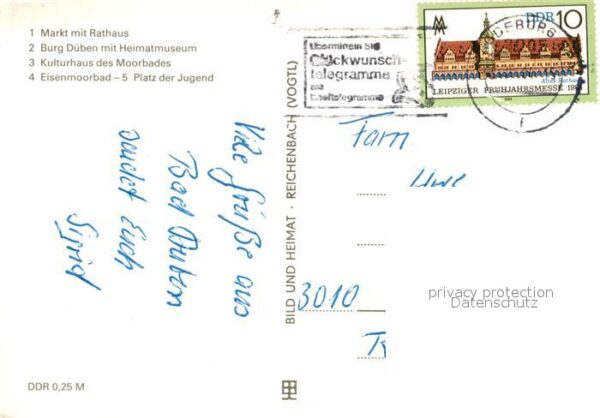 1 Markt mit Rathaus
2 Burg Düben mit Heimatmuseum
3 Kulturhaus des Moorbades
4 Eisenmoorbad – 5 Platz der Jugend
Viele Grüße aus
Bad Düben
sendet Euch
Sigrid
DDR 0,25 M
BILD UND HEIMAT · REICHENBACH (VOGTL)
Übermitteln Sie
Glückwunsch-
telegramme
DDR 10
Altes Rathaus
LEIPZIGER FRÜHJAHRSMESSE
Fam
Uwe
3010
privacy protection
Datenschutz